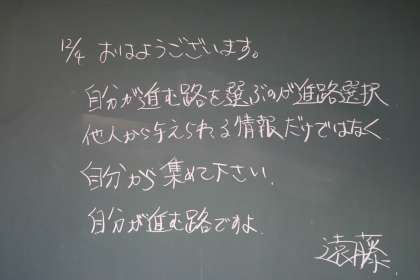 12/4 おはようございます。
自分が進む路を選ぶのが進路選択
他人から与えられる情報だけではなく
自分から集めて下さい.
自分が進む路ですよ.
遠藤